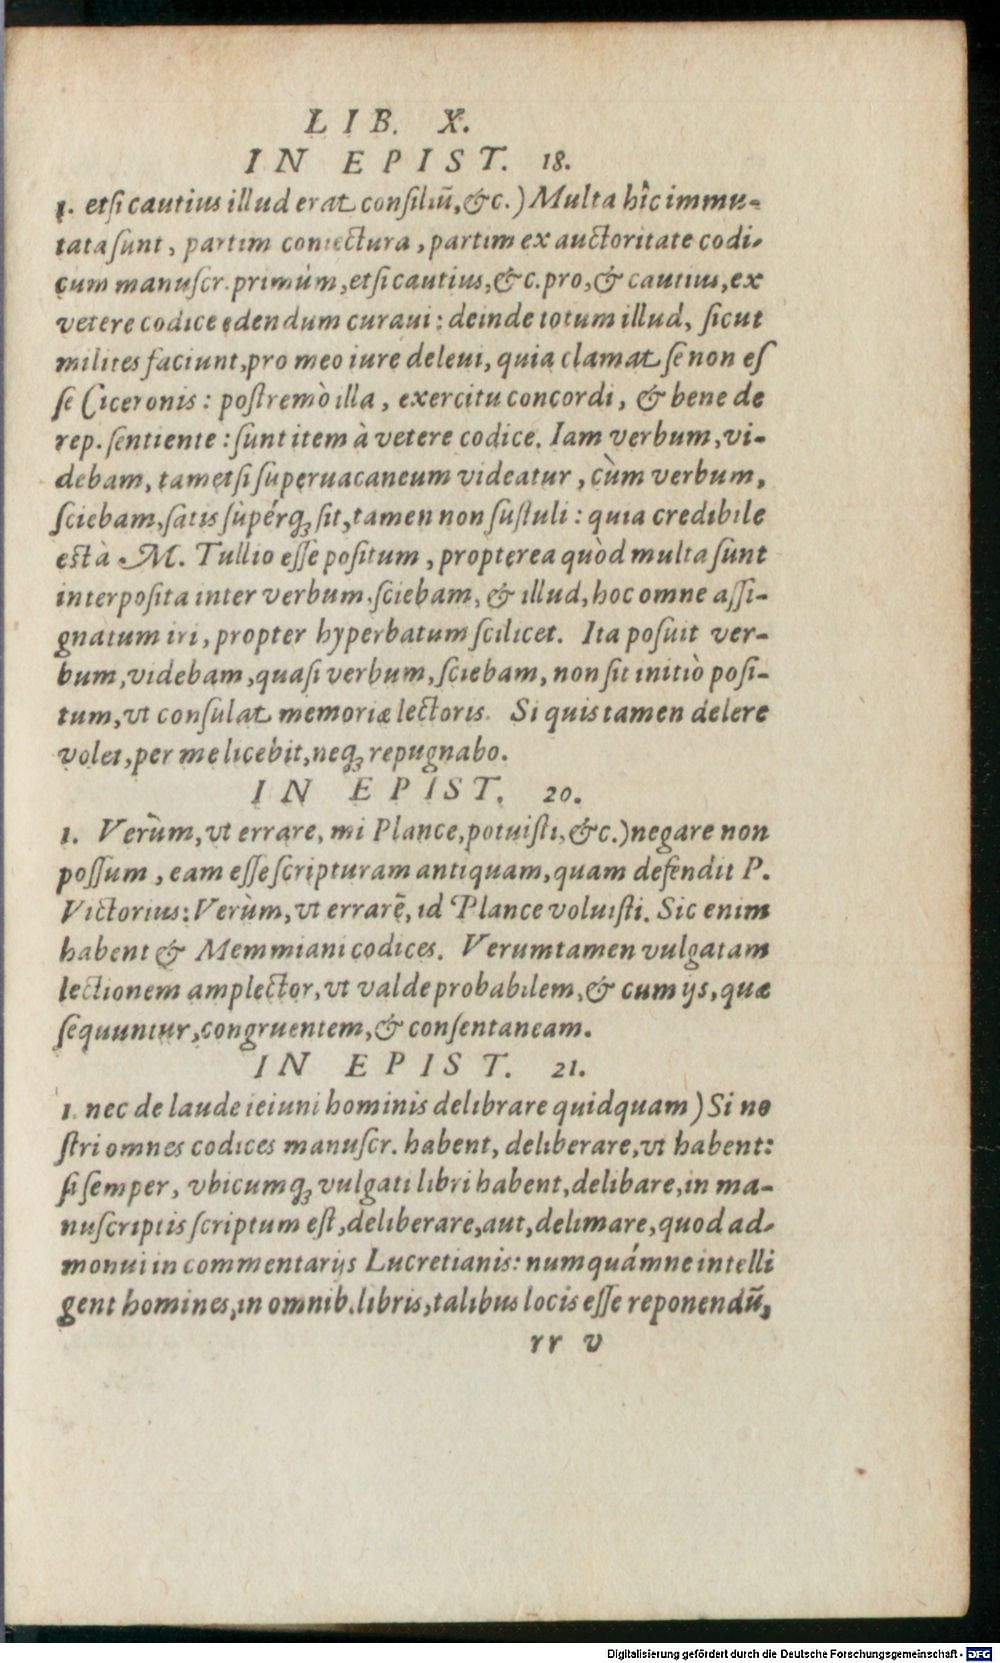 LIB. X.
IN EPIST. 18.
1. etsi cautius illud erat consiliū, &c.) Multa hîc immu-
tata sunt, partim coniectura, partim ex auctoritate codi-
cum manuscr. primùm, etsi cautius, &c. pro, & cautius, ex
vetere codice edendum curaui: deinde totum illud, sicut
milites faciunt, pro meo iure deleui, quia clamat se non es
se Ciceronis: postremò illa, exercitu concordi, & bene de
rep. sentiente: sunt item à vetere codice. Iam verbum, vi-
debam, tametsi superuacaneum videatur, cùm verbum,
sciebam, satis supérq; sit, tamen non sustuli: quia credibile
est à M. Tullio esse positum, propterea quòd multa sunt
interposita inter verbum, sciebam, & illud, hoc omne assi-
gnatum iri, propter hyperbatum scilicet. Ita posuit ver-
bum, videbam, quasi verbum, sciebam, non sit initiò posi-
tum, vt consulat memoriæ lectoris. Si quis tamen delere
volet, per me licebit, neq; repugnabo.
IN EPIST. 20.
1. Verùm, vt errare, mi Plance, potuisti, &c.) negare non
possum, eam esse scripturam antiquam, quam defendit P.
Victorius: Verùm, vt errarē, id Plance voluisti. Sic enim
habent & Memmiani codices. Verumtamen vulgatam
lectionem amplector, vt valde probabilem, & cum ijs, quæ
sequuntur, congruentem, & consentaneam.
IN EPIST. 21.
1. nec de laude ieiuni hominis delibrare quidquam) Si no
stri omnes codices manuscr. habent, deliberare, vt habent:
si semper, vbicumq; vulgati libri habent, delibare, in ma-
nuscriptis scriptum est, deliberare, aut, delimare, quod ad-
monui in commentarijs Lucretianis: numquámne intelli
gent homines, in omnib. libris, talibus locis esse reponendū,
rr v
Digitalisierung gefördert durch die Deutsche Forschungsgemeinschaft - DFG